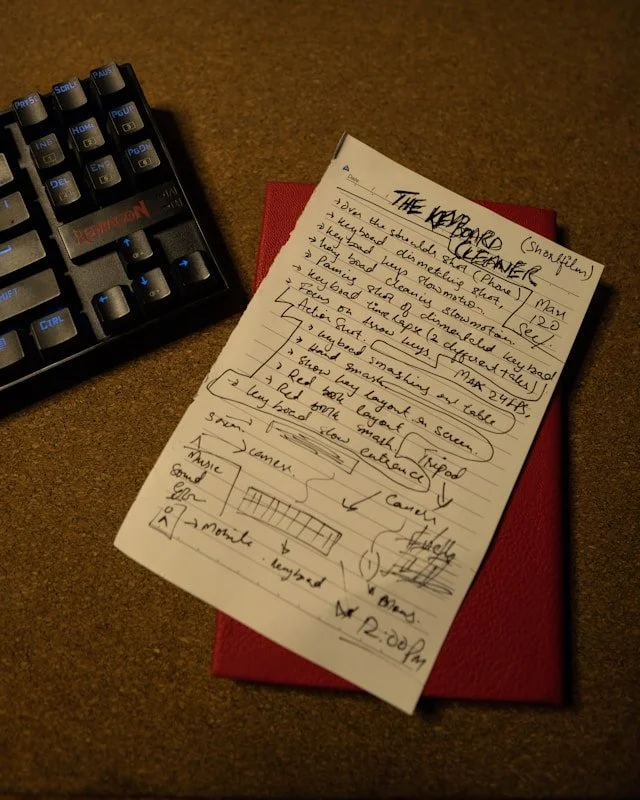 PRTS
SCRL
PAUS
INS
HOME
PGUP
DEL
END
PGDN
REDRAGON
CTRL
Date
THE KEYBOARD
CLEANER
(Shortfilm)
→ Over the shoulder shot (Phone)
→ Keyboard dismantling shot.
→ Keyboard keys slowmotion.
→ Key board cleaning slowmotion.
→ Panning shot of dismantled keyboard
→ Keyboard timelapse (2 different takes)
→ Focus on arrow keys.
Max
120
Sec/.
MAX 24FPS,
Action Shot.
→ Keyboard smashing on table
→ Hand smash
→ Show key layout on screen.
→ Red book layout
→ Red book smash
→ Key board slow entrance
Tripod
camera.
Music
Sound
→ Mobile.
keyboard
12:00PM